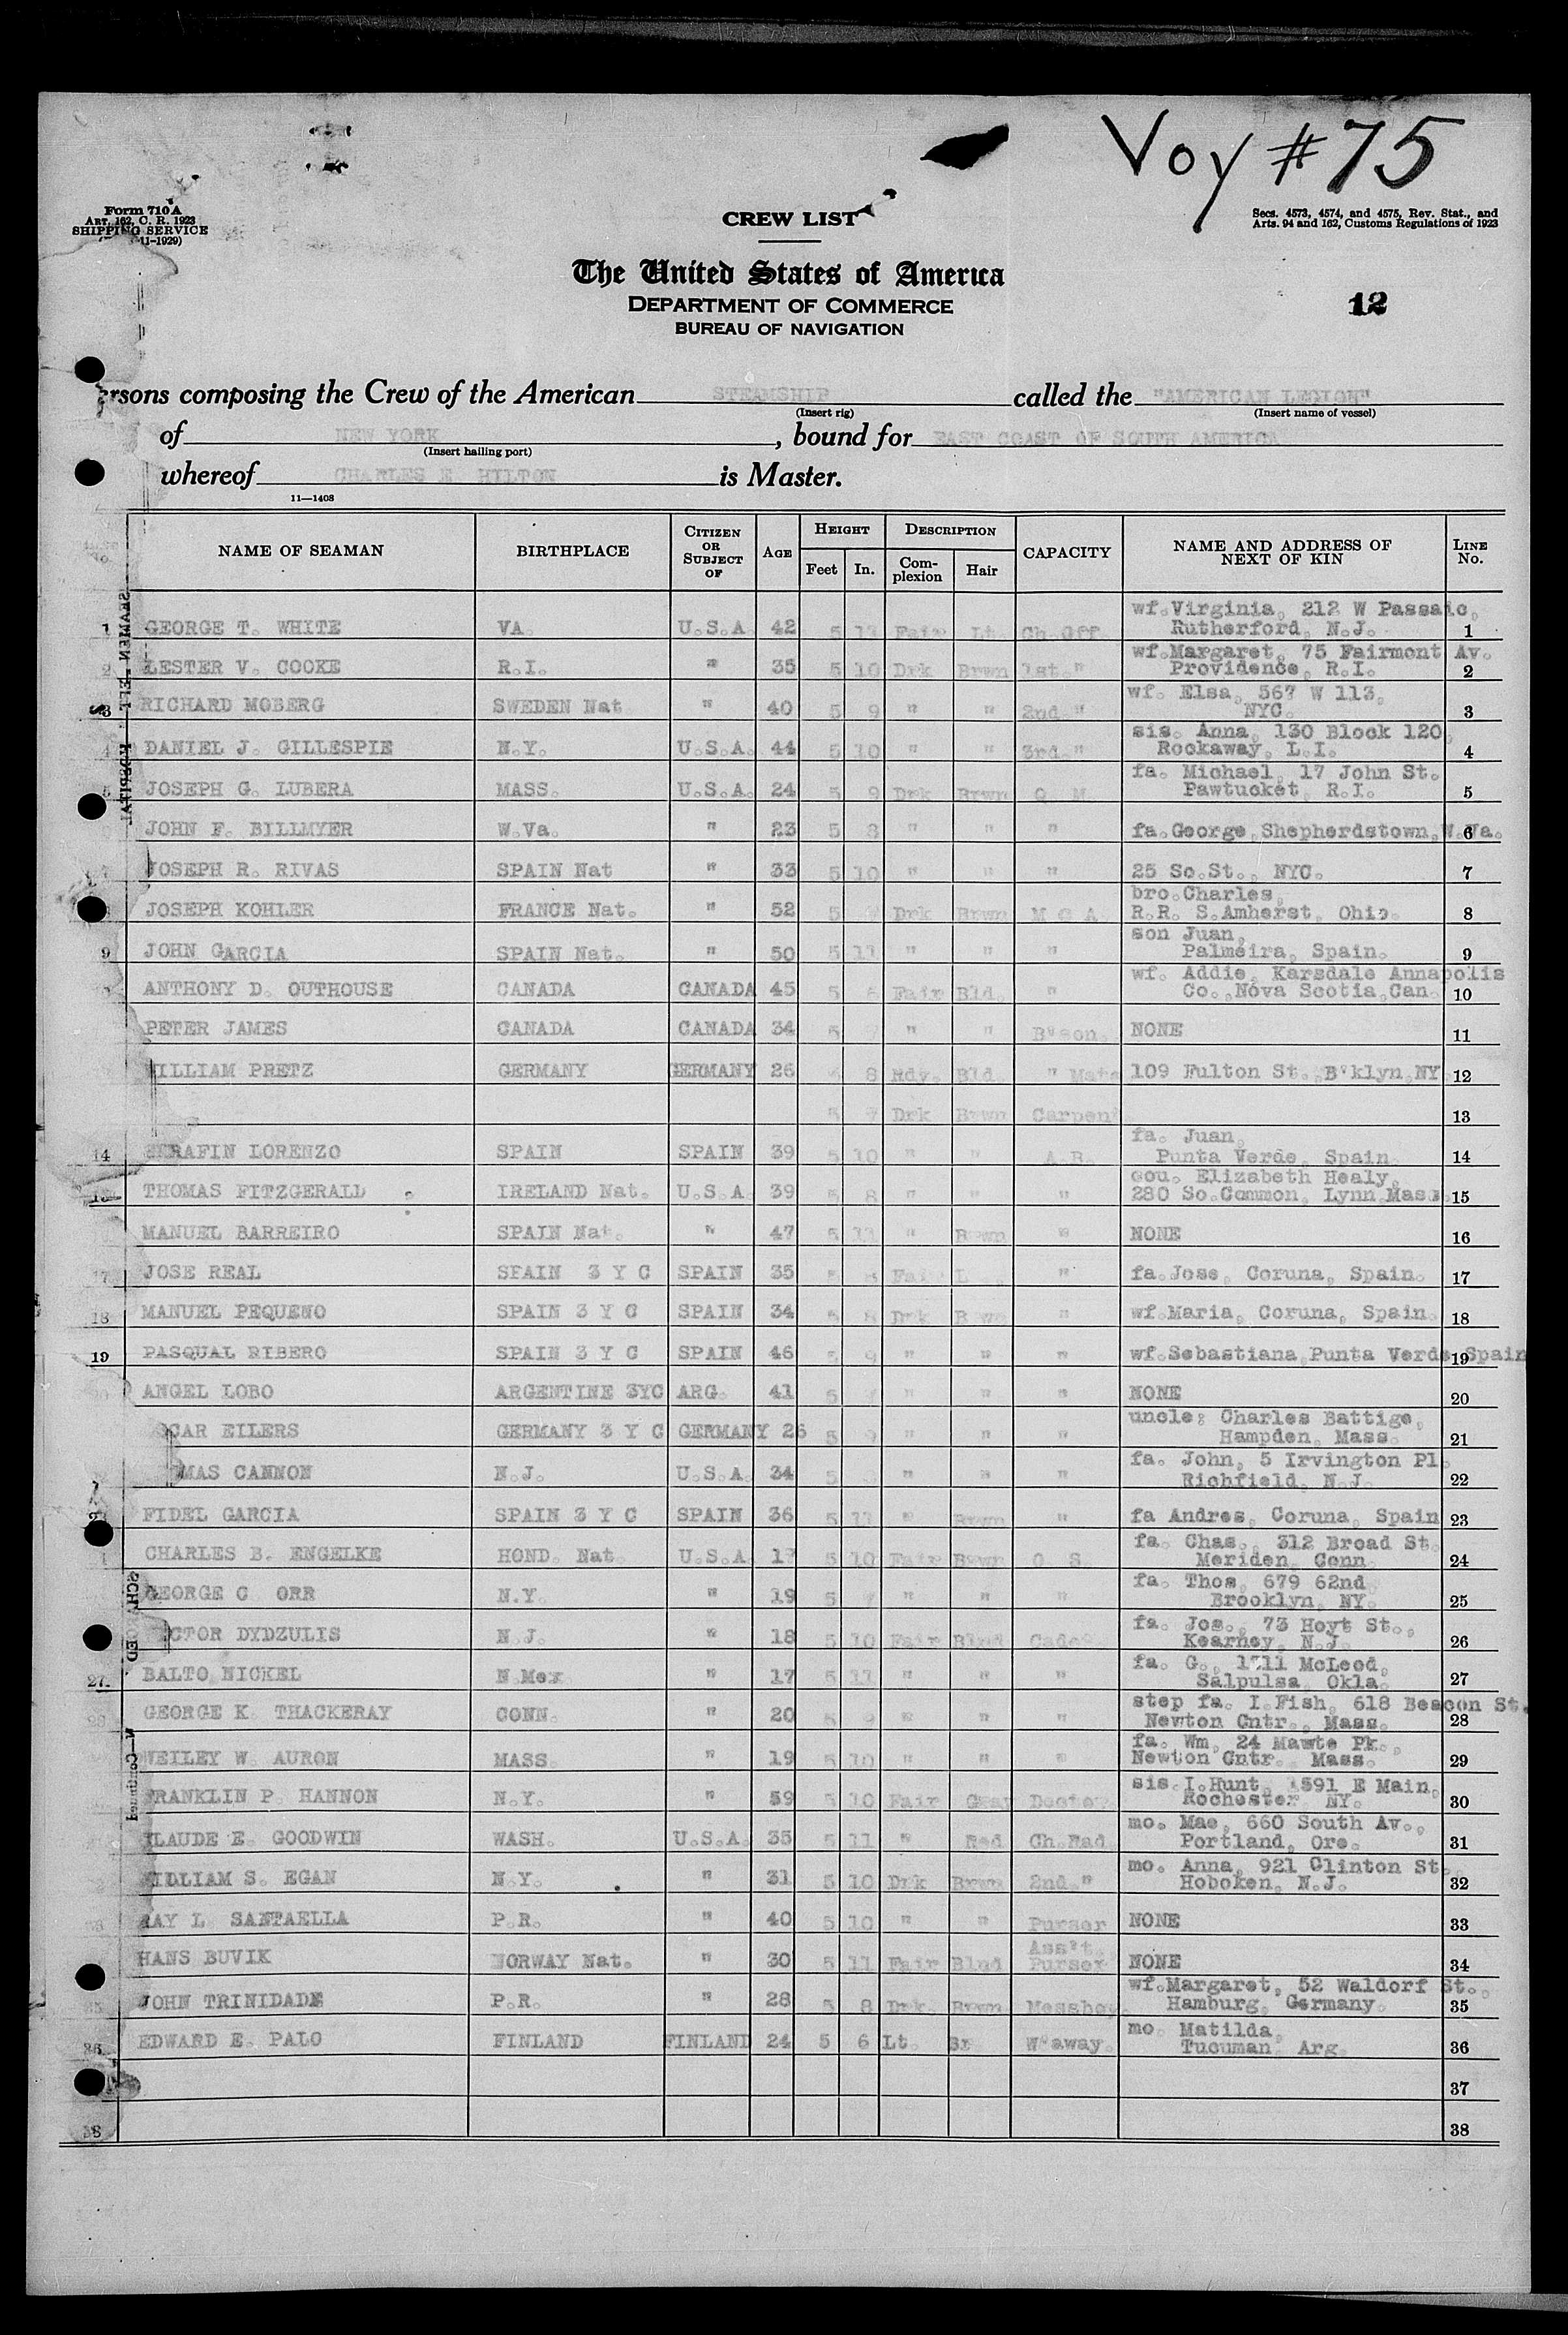 Voy #75
Form 710A
ART. 162, C. R. 1923
SHIPPING SERVICE
11-1929)
CREW LIST
Secs. 4573, 4574, and 4575, Rev. Stat., and
Arts. 94 and 162, Customs Regulations of 1923
The United States of America
DEPARTMENT OF COMMERCE
BUREAU OF NAVIGATION
12
ersons composing the Crew of the American STEAMSHIP called the "AMERICAN LEGION"
(Insert rig) (Insert name of vessel)
of NEW YORK, bound for EAST COAST OF SOUTH AMERICA
(Insert hailing port)
whereof CHARLES E HILTON is Master.
11—1408
NAME OF SEAMAN BIRTHPLACE CITIZEN OR SUBJECT OF AGE HEIGHT Feet In. DESCRIPTION Complexion Hair CAPACITY NAME AND ADDRESS OF NEXT OF KIN LINE No.
wf.Virginia, 212 W Passaic,
1 GEORGE T. WHITE VA. U.S.A. 42 5 11 Fair Lt. Ch.Off. Rutherford, N.J. 1
wf.Margaret, 75 Fairmont Av.
2 LESTER V. COOKE R.I. " 35 5 10 Drk Brwn 1st." Providence, R.I. 2
wf. Elsa, 567 W 113,
3 RICHARD MOBERG SWEDEN Nat " 40 5 9 " " 2nd." NYC. 3
sis. Anna, 130 Block 120,
4 DANIEL J. GILLESPIE N.Y. U.S.A. 44 5 10 " " 3rd." Rockaway, L.I. 4
fa. Michael, 17 John St.
5 JOSEPH G. LUBERA MASS. U.S.A. 24 5 9 Drk Brwn Q. M. Pawtucket, R.I. 5
JOHN F. BILLMYER W.Va. " 23 5 8 " " " fa.George,Shepherdstown,W.Va. 6
JOSEPH R. RIVAS SPAIN Nat " 33 5 10 " " " 25 So.St., NYC. 7
bro.Charles,
JOSEPH KOHLER FRANCE Nat. " 52 5 Drk Brwn M C A R.R. S.Amherst, Ohio. 8
son Juan,
9 JOHN GARCIA SPAIN Nat. " 50 5 11 " " " Palmeira, Spain. 9
wf. Addie, Karsdale Annapolis
ANTHONY D. OUTHOUSE CANADA CANADA 45 5 6 Fair Bld. " Co.,Nova Scotia,Can. 10
PETER JAMES CANADA CANADA 34 5 " " B'son. NONE 11
WILLIAM PRETZ GERMANY GERMANY 26 8 Rdy. Bld. " Mate 109 Fulton St. B'klyn,NY 12
5 7 Drk Brwn Carpent 13
fa. Juan,
14 SERAFIN LORENZO SPAIN SPAIN 39 5 10 " " A.B. Punta Verde, Spain 14
cou. Elizabeth Healy,
15 THOMAS FITZGERALD IRELAND Nat. U.S.A. 39 5 8 " " " 280 So.Common, Lynn,Mass. 15
MANUEL BARREIRO SPAIN Nat. " 47 5 11 " Brwn " NONE 16
17 JOSE REAL SPAIN 3 Y C SPAIN 35 5 Fair L " fa.Jose, Coruna, Spain. 17
18 MANUEL PEQUENO SPAIN 3 Y C SPAIN 34 5 8 Drk Brwn " wf.Maria, Coruna, Spain. 18
19 PASQUAL RIBERO SPAIN 3 Y C SPAIN 46 5 9 " " " wf.Sebastiana,Punta Verde Spain 19
ANGEL LOBO ARGENTINE 3YC ARG. 41 5 " " " NONE 20
uncle: Charles Battige,
CAR EILERS GERMANY 3 Y C GERMANY 26 5 9 " " " Hampden, Mass. 21
fa. John, 5 Irvington Pl.
MAS CANNON N.J. U.S.A. 34 5 " " " Richfield, N.J. 22
FIDEL GARCIA SPAIN 3 Y C SPAIN 36 5 11 " Brwn " fa Andres, Coruna, Spain 23
fa. Chas., 312 Broad St.
CHARLES B. ENGELKE HOND. Nat. U.S.A. 5 10 Fair Brwn O. S. Meriden, Conn. 24
fa. Thos, 679 62nd
GEORGE C ORR N.Y. " 19 5 " " " Brooklyn, NY. 25
fa. Jos., 73 Hoyt St.,
CTOR DYDZULIS N.J. " 18 5 10 Fair Blnd Cadet. Kearney, N.J. 26
fa. G., 1711 McLeod,
27. BALTO NICKEL N.Mex. " 17 5 11 " " " Salpulsa, Okla. 27
step fa. I.Fish, 618 Beacon St.
GEORGE K. THACKERAY CONN. " 20 5 9 " " " Newton Cntr., Mass. 28
fa. Wm, 24 Mawte Pk.,
WEILEY W. AURON MASS. " 19 5 10 " " " Newton Cntr., Mass. 29
sis.I.Hunt, 1591 E Main,
FRANKLIN P. HANNON N.Y. " 59 5 10 Fair Gray Doctor Rochester, NY. 30
mo. Mae, 660 South Av.,
CLAUDE E. GOODWIN WASH. U.S.A. 35 5 11 " Red Ch.Rad. Portland, Ore. 31
mo. Anna, 921 Clinton St.
WILLIAM S. EGAN N.Y. " 31 5 10 Drk Brwn 2nd." Hoboken, N.J. 32
RAY L. SANTAELLA P.R. " 40 5 10 " " Purser NONE 33
HANS BUVIK NORWAY Nat. " 30 5 11 Fair Blnd Ass't. Purser NONE 34
wf.Margaret, 52 Waldorf St.,
JOHN TRINIDADE P.R. " 28 5 8 Drk. Brwn Messboy. Hamburg, Germany. 35
mo. Matilda,
36 EDWARD E. PALO FINLAND FINLAND 24 5 6 Lt. Br W'away. Tucuman, Arg. 36
37
38 38